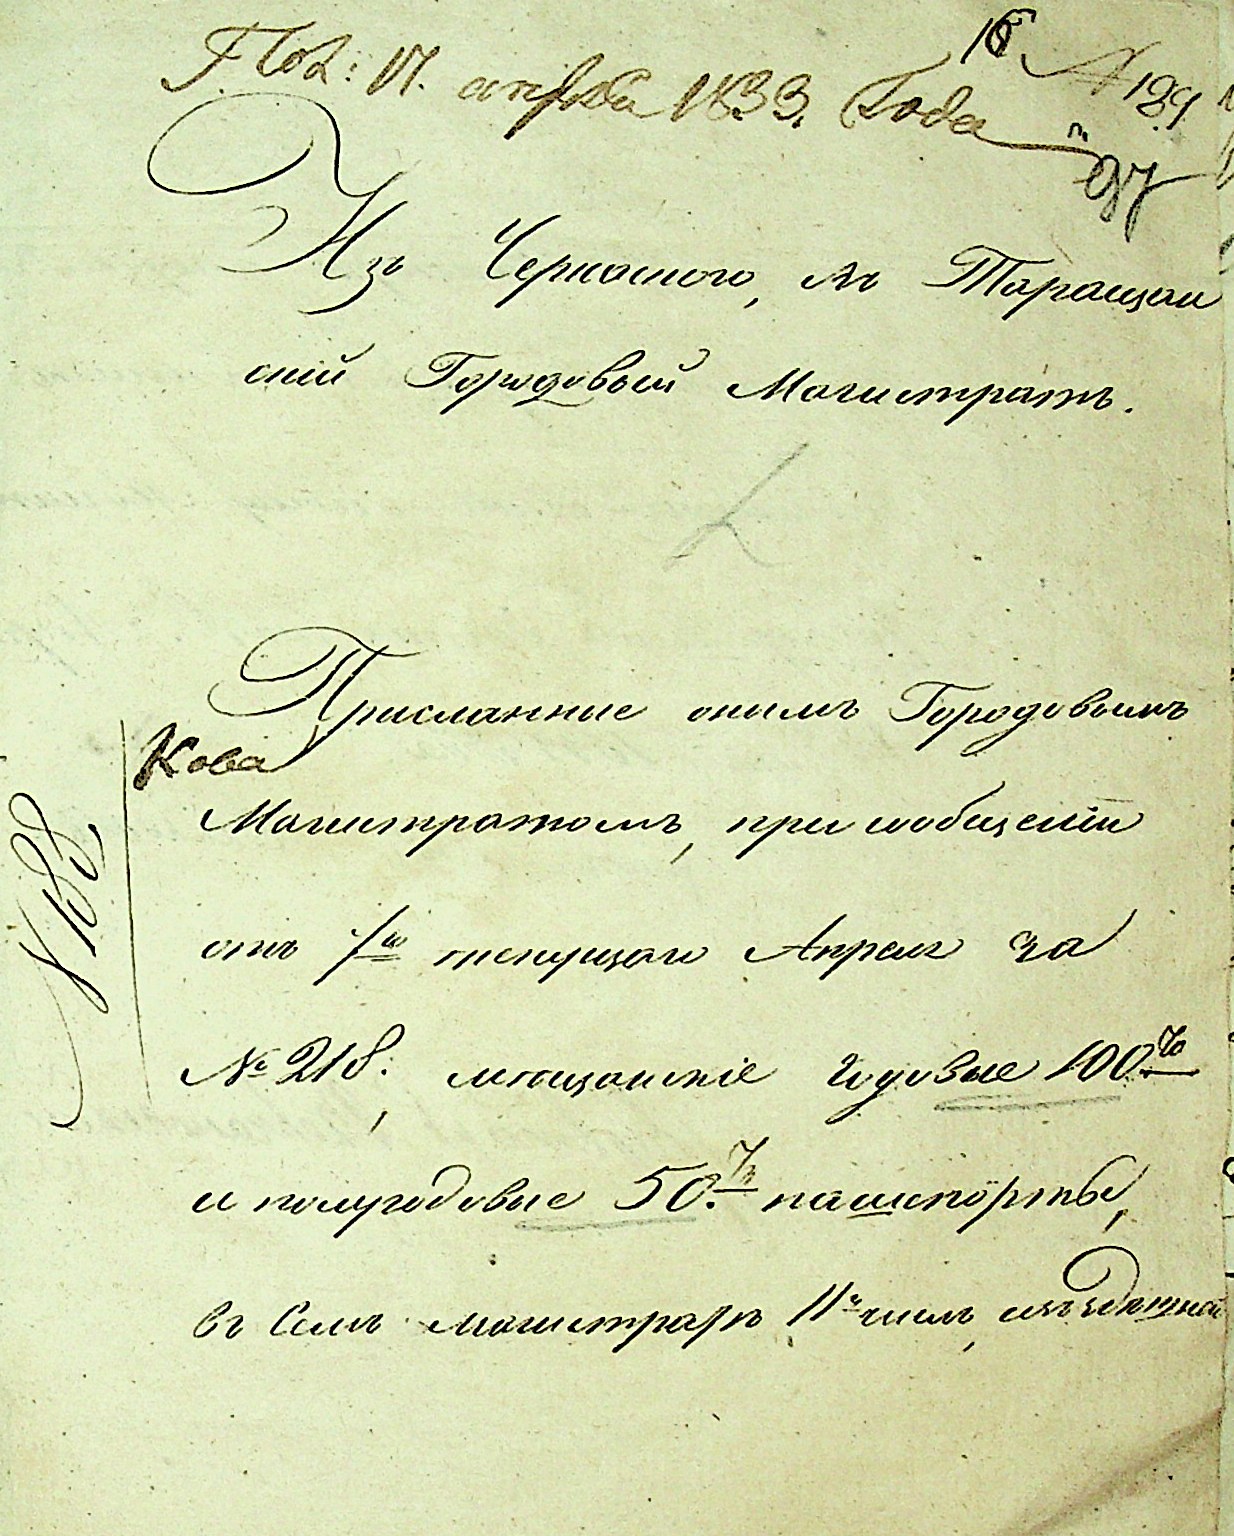 Пол: 17. апреля 1833. Года
16 № 189
97
Изъ Черкаского, въ Таращан
ский Городовый Магистратъ.
Присланные онымъ Городовымъ
Кова
Магистратомъ, при сообщеніи
отъ 7го текущаго Апреля за
№ 218, мещанскіе годовые 100.
и полугодовые 50. пашпорты,
въ Семъ магистрате 11 числа,